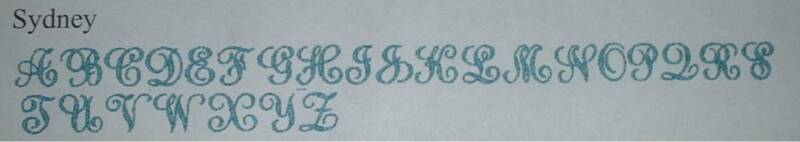 Sydney
A B C D E F G H I J K L M N O P Q R S
T U V W X Y Z